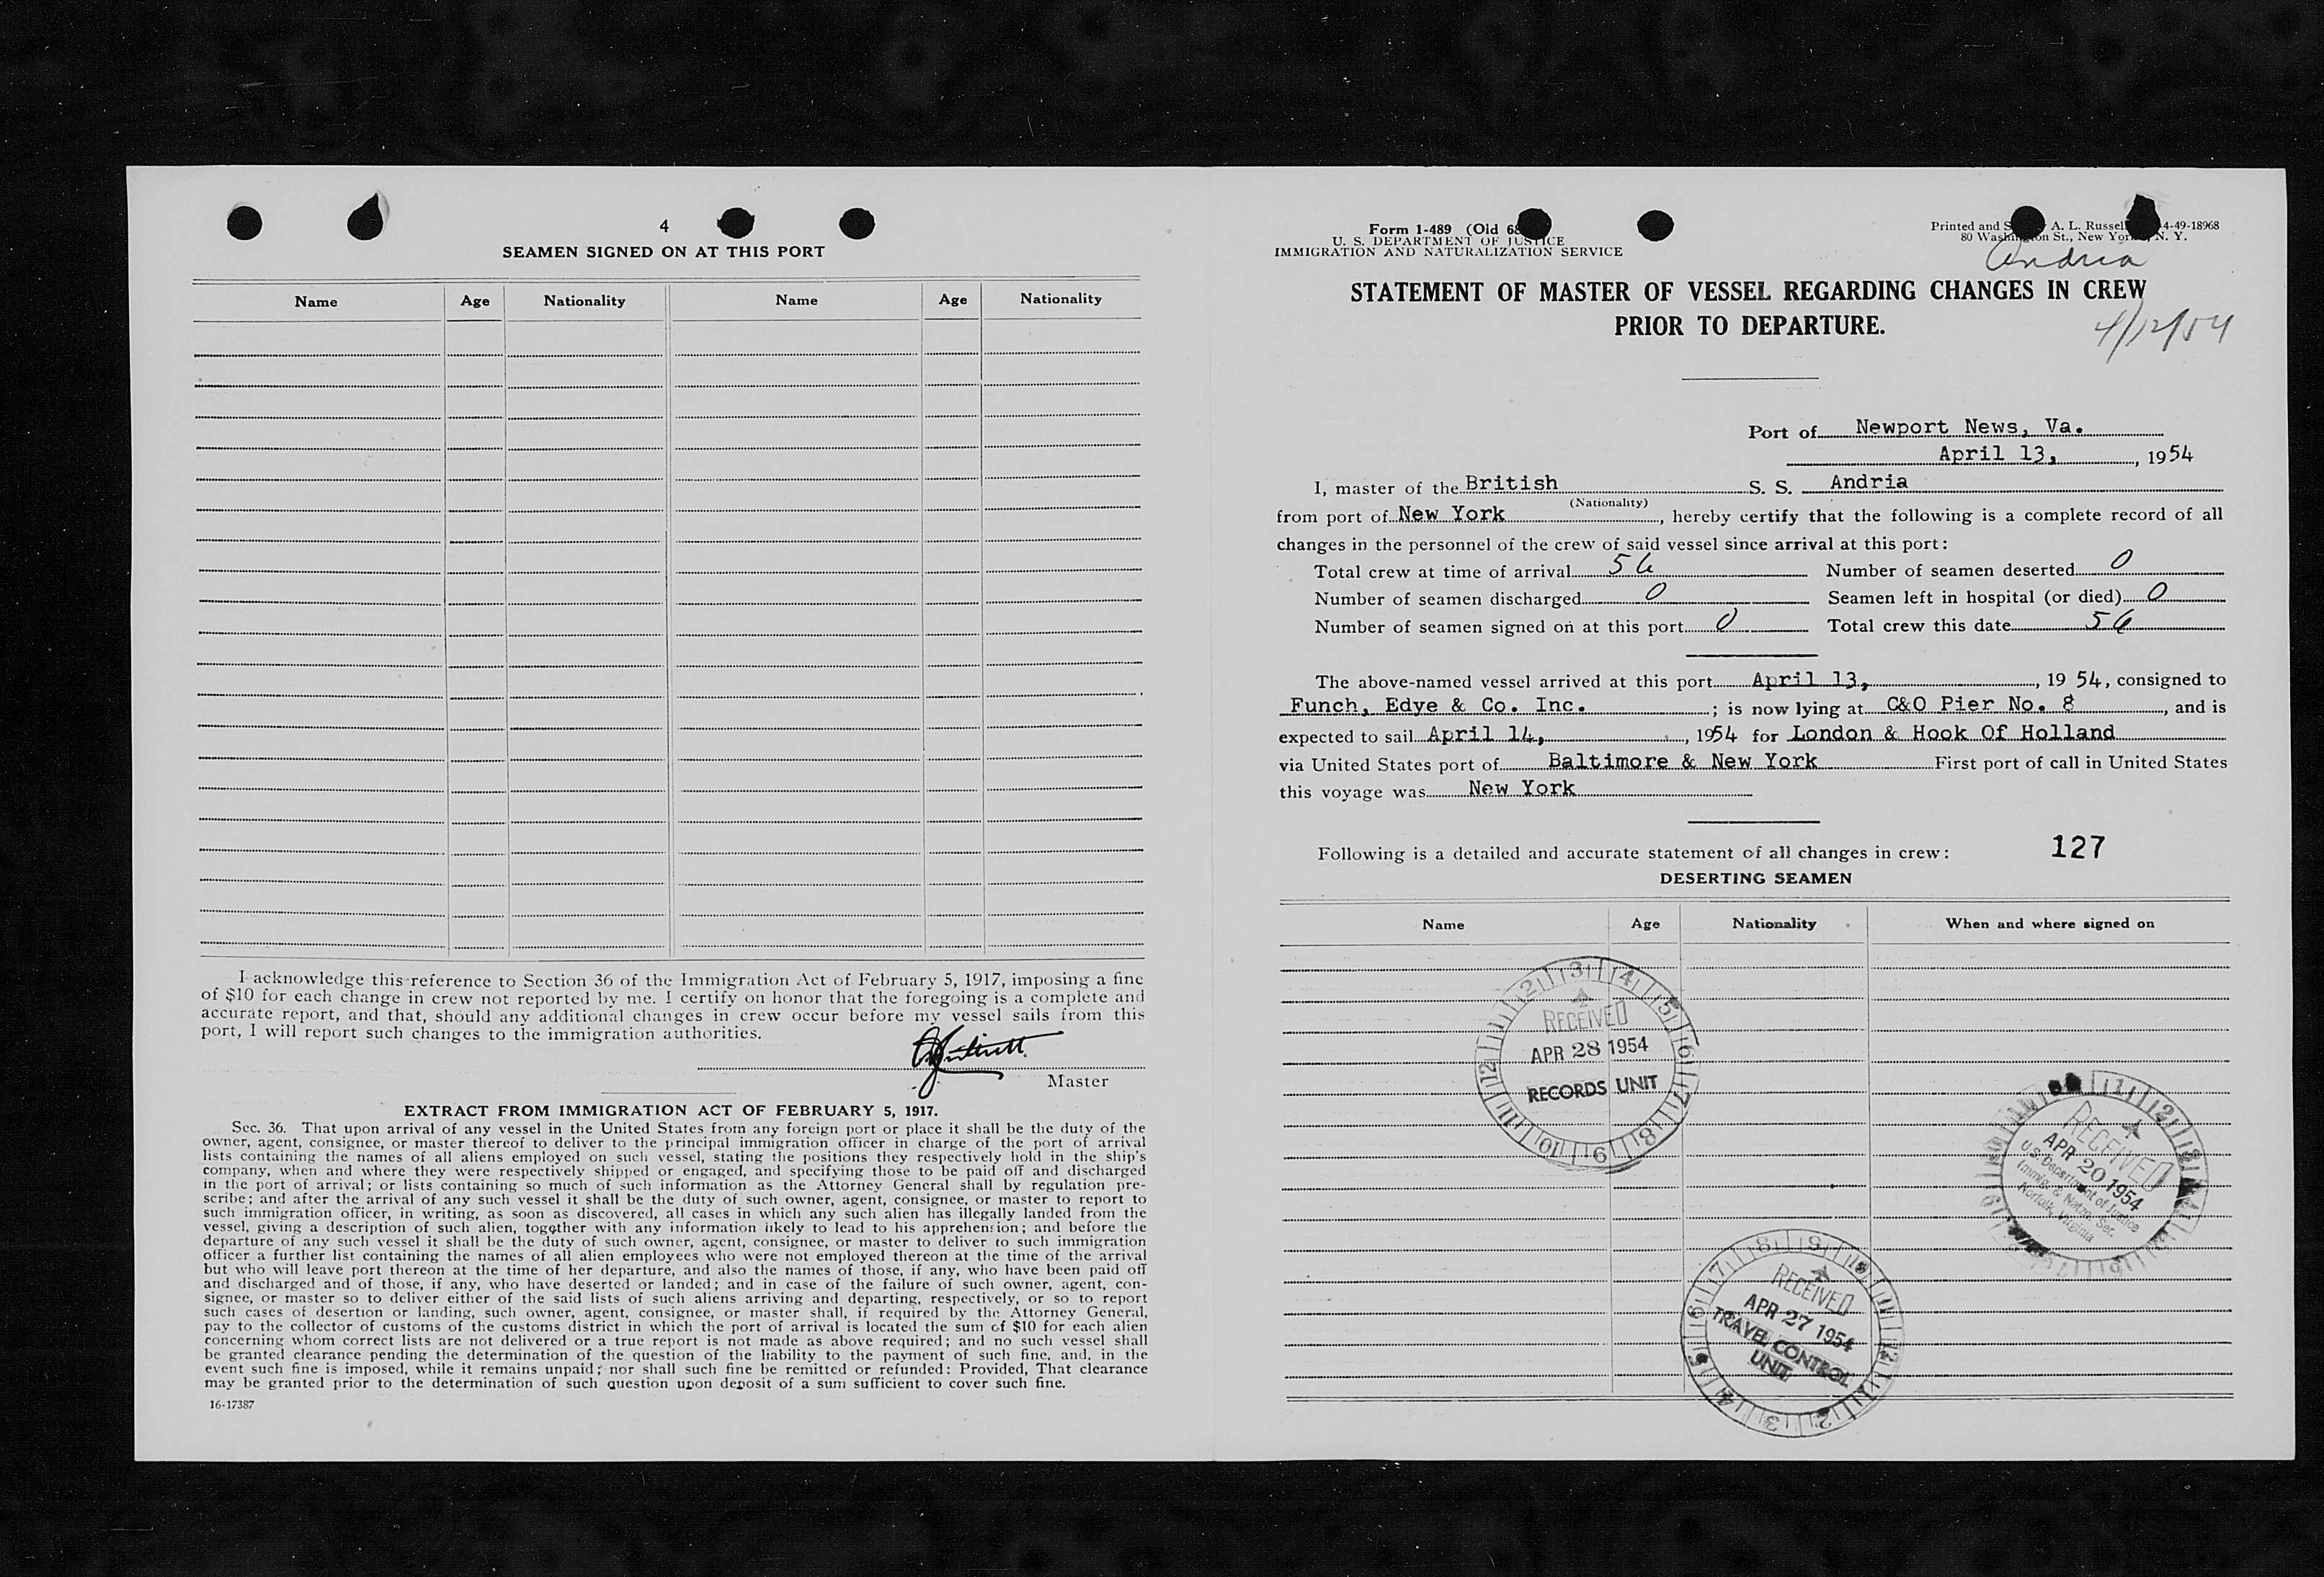 4
SEAMEN SIGNED ON AT THIS PORT
Name Age Nationality Name Age Nationality
I acknowledge this reference to Section 36 of the Immigration Act of February 5, 1917, imposing a fine
of $10 for each change in crew not reported by me. I certify on honor that the foregoing is a complete and
accurate report, and that, should any additional changes in crew occur before my vessel sails from this
port, I will report such changes to the immigration authorities.
Master
EXTRACT FROM IMMIGRATION ACT OF FEBRUARY 5, 1917.
Sec. 36. That upon arrival of any vessel in the United States from any foreign port or place it shall be the duty of the
owner, agent, consignee, or master thereof to deliver to the principal immigration officer in charge of the port of arrival
lists containing the names of all aliens employed on such vessel, stating the positions they respectively hold in the ship's
company, when and where they were respectively shipped or engaged, and specifying those to be paid off and discharged
in the port of arrival; or lists containing so much of such information as the Attorney General shall by regulation pre-
scribe; and after the arrival of any such vessel it shall be the duty of such owner, agent, consignee, or master to report to
such immigration officer, in writing, as soon as discovered, all cases in which any such alien has illegally landed from the
vessel, giving a description of such alien, together with any information likely to lead to his apprehension; and before the
departure of any such vessel it shall be the duty of such owner, agent, consignee, or master to deliver to such immigration
officer a further list containing the names of all alien employees who were not employed thereon at the time of the arrival
but who will leave port thereon at the time of her departure, and also the names of those, if any, who have been paid off
and discharged and of those, if any, who have deserted or landed; and in case of the failure of such owner, agent, con-
signee, or master so to deliver either of the said lists of such aliens arriving and departing, respectively, or so to report
such cases of desertion or landing, such owner, agent, consignee, or master shall, if required by the Attorney General,
pay to the collector of customs of the customs district in which the port of arrival is located the sum of $10 for each alien
concerning whom correct lists are not delivered or a true report is not made as above required; and no such vessel shall
be granted clearance pending the determination of the question of the liability to the payment of such fine, and, in the
event such fine is imposed, while it remains unpaid; nor shall such fine be remitted or refunded: Provided, That clearance
may be granted prior to the determination of such question upon deposit of a sum sufficient to cover such fine.
16-17387
Form 1-489 (Old
U. S. DEPARTMENT OF JUSTICE
IMMIGRATION AND NATURALIZATION SERVICE
Printed and A. L. Russell 4-49-18968
80 Washington St., New York, N. Y.
Andria
STATEMENT OF MASTER OF VESSEL REGARDING CHANGES IN CREW
PRIOR TO DEPARTURE.
4/12/54
Port of Newport News, Va.
April 13, , 1954
I, master of the British S. S. Andria
(Nationality)
from port of New York , hereby certify that the following is a complete record of all
changes in the personnel of the crew of said vessel since arrival at this port:
Total crew at time of arrival 56 Number of seamen deserted 0
Number of seamen discharged 0 Seamen left in hospital (or died) 0
Number of seamen signed on at this port 0 Total crew this date 56
The above-named vessel arrived at this port April 13, , 1954, consigned to
Funch, Edye & Co. Inc. ; is now lying at C&O Pier No. 8 , and is
expected to sail April 14, , 1954 for London & Hook Of Holland
via United States port of Baltimore & New York First port of call in United States
this voyage was New York
Following is a detailed and accurate statement of all changes in crew: 127
DESERTING SEAMEN
Name Age Nationality When and where signed on
RECEIVED
APR 28 1954
RECORDS UNIT
RECEIVED
APR 20 1954
U.S. Department of Justice
Immig. & Natzn. Ser.
Norfolk, Virginia
RECEIVED
APR 27 1954
TRAVEL CONTROL
UNIT